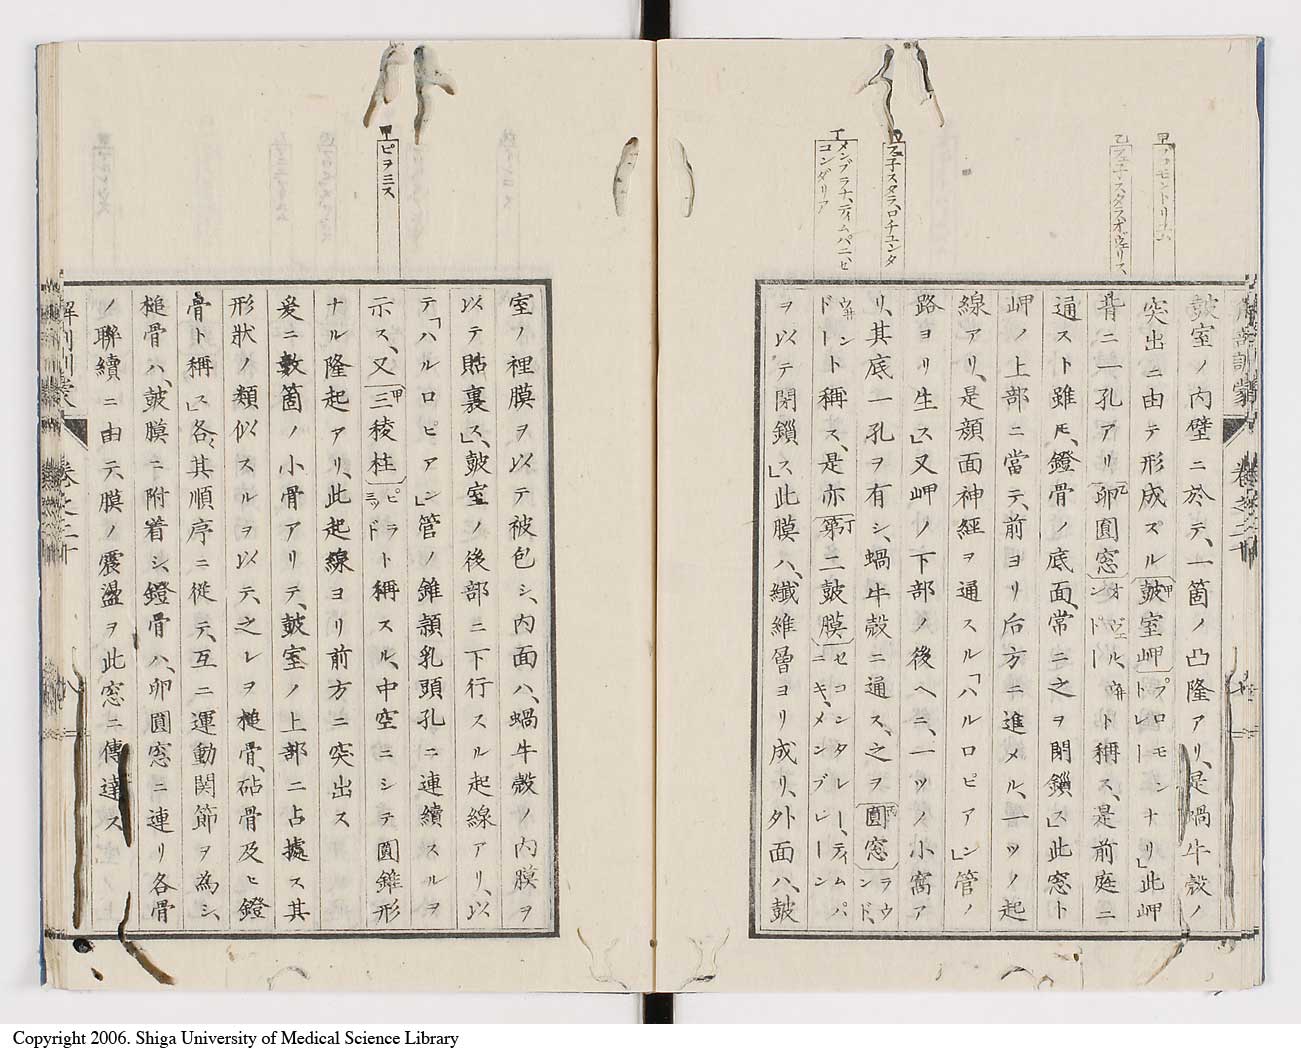 甲プロモントリウム
乙フェ子スタラ、オヴェリス
丙フェ子スタラ、ロチュンダ
丁メンブラナ、ティムパニ、セ
コンダリア
皷室ノ内壁ニ於テ、一箇ノ凸隆アリ、是蝸牛殻ノ
突出ニ由テ形成ズル皷室岬プロモントレーナリ」此岬
脊ニ一孔アリ卵圓窓オヴェル、ウヰンドート稱ス、是前庭ニ
通スト雖𪜈、鐙骨ノ底面、常ニ之ヲ閉鎖ス」此窓ト
岬ノ上部ニ當テ、前ヨリ后方ニ進メル、一ツノ起
線アリ、是顔面神經ヲ通スル「ハルロピアン」管ノ
路ヨリ生ス」又岬ノ下部ノ後ヘニ、一ツノ小窩ア
リ、其底一孔ヲ有シ、蝸牛殻ニ通ス、之ヲ圓窓ラウンド、
ウヰンドート稱ス、是亦第二皷膜セコンタレー、ティムパニキ、メンブレーン
ヲ以テ閉鎖ス」此膜ハ、纖維層ヨリ成リ、外面ハ、皷
甲ピラミス
室ノ裡膜ヲ以テ被包シ、内面ハ、蝸牛殻ノ内膜ヲ
以テ貼裏ス」皷室ノ後部ニ下行スル起線アリ、以
テ「ハルロピアン」管ノ錐頷乳頭孔ニ連續スルヲ
示ス、又三稜柱ピラミッドト稱スル、中空ニシテ圓錐形
ナル隆起アリ、此起線ヨリ前方ニ突出ス
爰ニ數箇ノ小骨アリテ、皷室ノ上部ニ占據ス其
形狀ノ類似スルヲ以テ、之レヲ槌骨、砧骨及ヒ鐙
骨ト稱ス」各〻其順序ニ從テ、互ニ運動関節ヲ為シ、
槌骨ハ、皷膜ニ附着シ、鐙骨ハ、卵圓窓ニ連リ各骨
ノ聯續ニ由テ膜ノ震盪ヲ此窓ニ傳達ス
解剖訓蒙
卷之二十
八
Copyright 2006. Shiga University of Medical Science Library